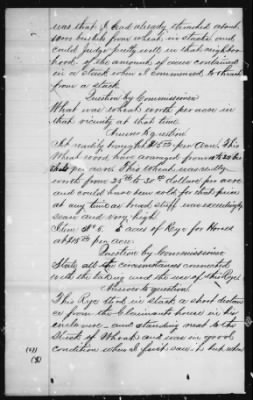 was that I had already threshed about
bushels from wheat in stacks and
could judge pretty well in that neighbor
hood of the amount of causes contained
in a stack when I commenced to thrash
from a stack
Question by Commissioner
What was wheat worth per acre in
that vicinity at that time
Answer to question
It readily brought $25.00 per Acre. This
Wheat would have averaged from
per acre. This Wheat was readily
worth from 25 to dollars per acre
and could have been sold for that price
at any time as bread stuff was exceedingly
scarce and very high.
Item No 6. 6 acres of Rye for Horses
at $15 per acre.
Question by Commissioner
State all the circumstances connected
with the taking and the use of this Rye
Answer to question
This Rye stood in stack a short distan
ce from the Claimants house in his
enclosure - and standing next to the
Stack of Wheat and was in good
condition when I first saw it but when